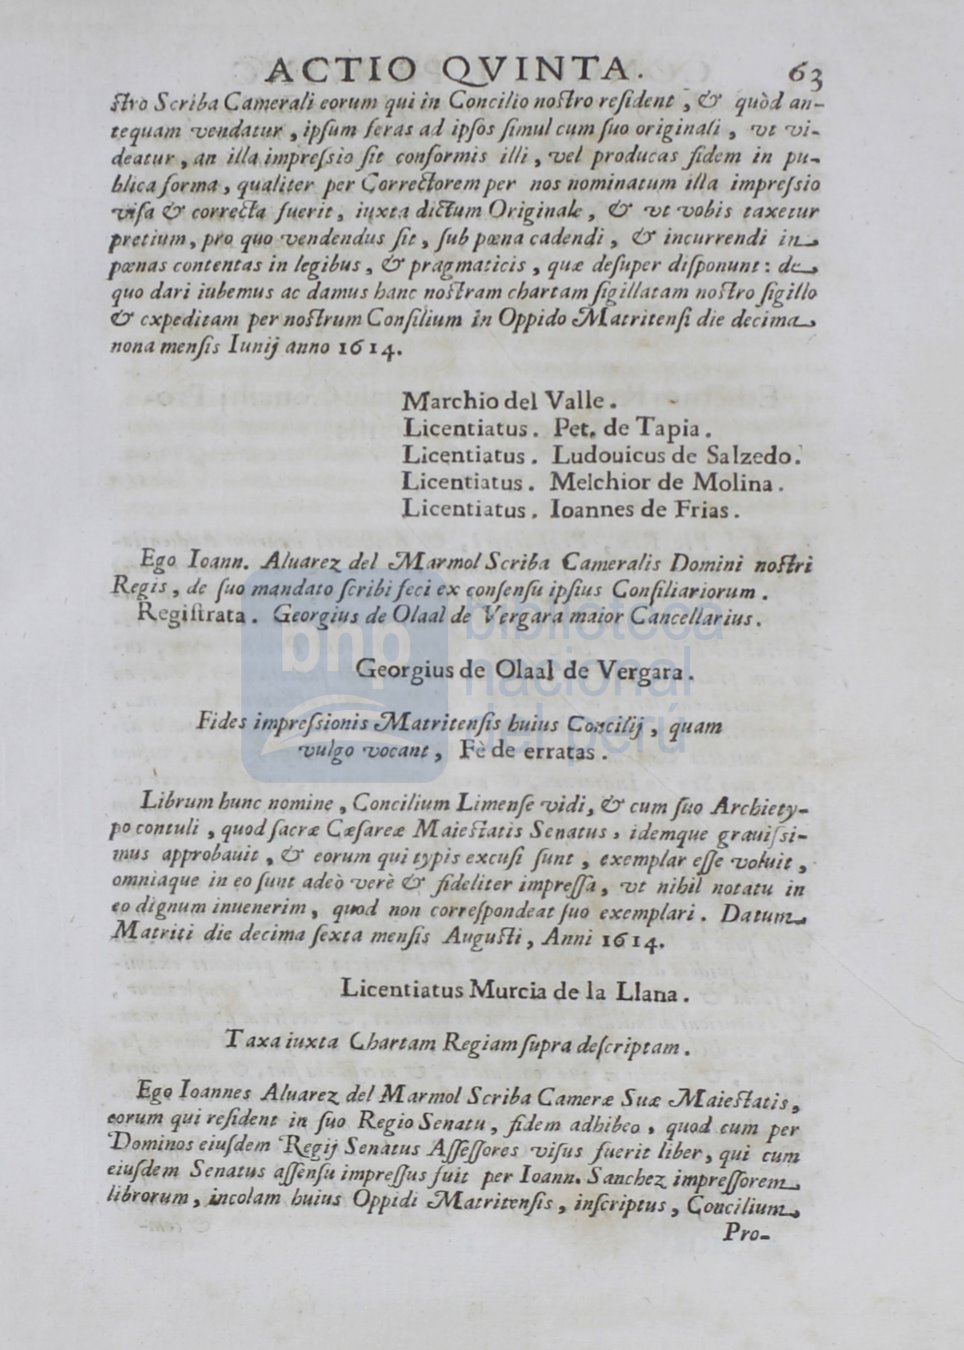 ACTIO QVINTA. 63
ſtro Scriba Camerali eorum qui in Concilio noſtro reſident, & quòd an-
tequam vendatur, ipſum feras ad ipſos ſimul cum ſuo originali, vt vi-
deatur, an illa impreſsio ſit conformis illi, vel producas fidem in pu-
blica forma, qualiter per Correctorem per nos nominatum illa impreſsio
viſa & correcta fuerit, iuxta dictum Originale, & vt vobis taxetur
pretium, pro quo vendendus ſit, ſub pœna cadendi, & incurrendi in
pœnas contentas in legibus, & pragmaticis, quæ deſuper diſponunt: de
quo dari iubemus ac damus hanc noſtram chartam ſigillatam noſtro ſigillo
& expeditam per noſtrum Conſilium in Oppido Matritenſi die decima
nona menſis Iunij anno 1614.
Marchio del Valle.
Licentiatus. Pet. de Tapia.
Licentiatus. Ludouicus de Salzedo.
Licentiatus. Melchior de Molina.
Licentiatus. Ioannes de Frias.
Ego Ioann. Aluarez del Marmol Scriba Cameralis Domini noſtri
Regis, de ſuo mandato ſcribi feci ex conſenſu ipſius Conſiliariorum.
Regiſtrata. Georgius de Olaal de Vergara maior Cancellarius.
Georgius de Olaal de Vergara.
Fides impreſsionis Matritenſis huius Concilij, quam
vulgo vocant, Fè de erratas.
Librum hunc nomine, Concilium Limenſe vidi, & cum ſuo Archiety-
po contuli, quod ſacræ Cæſareæ Maieſtatis Senatus, idemque grauiſsi-
mus approbauit, & eorum qui typis excuſi ſunt, exemplar eſſe voluit,
omniaque in eo ſunt adeò verè & fideliter impreſſa, vt nihil notatu in
eo dignum inuenerim, quod non correſpondeat ſuo exemplari. Datum
Matriti die decima ſexta menſis Auguſti, Anni 1614.
Licentiatus Murcia de la Llana.
Taxa iuxta Chartam Regiam ſupra deſcriptam.
Ego Ioannes Aluarez del Marmol Scriba Cameræ Suæ Maieſtatis,
eorum qui reſident in ſuo Regio Senatu, fidem adhibeo, quod cum per
Dominos eiuſdem Regij Senatus Aſſeſſores viſus fuerit liber, qui cum
eiuſdem Senatus aſſenſu impreſſus fuit per Ioann. Sanchez impreſſorem
librorum, incolam huius Oppidi Matritenſis, inſcriptus, Concilium
Pro-
bnp biblioteca
nacional
del perú